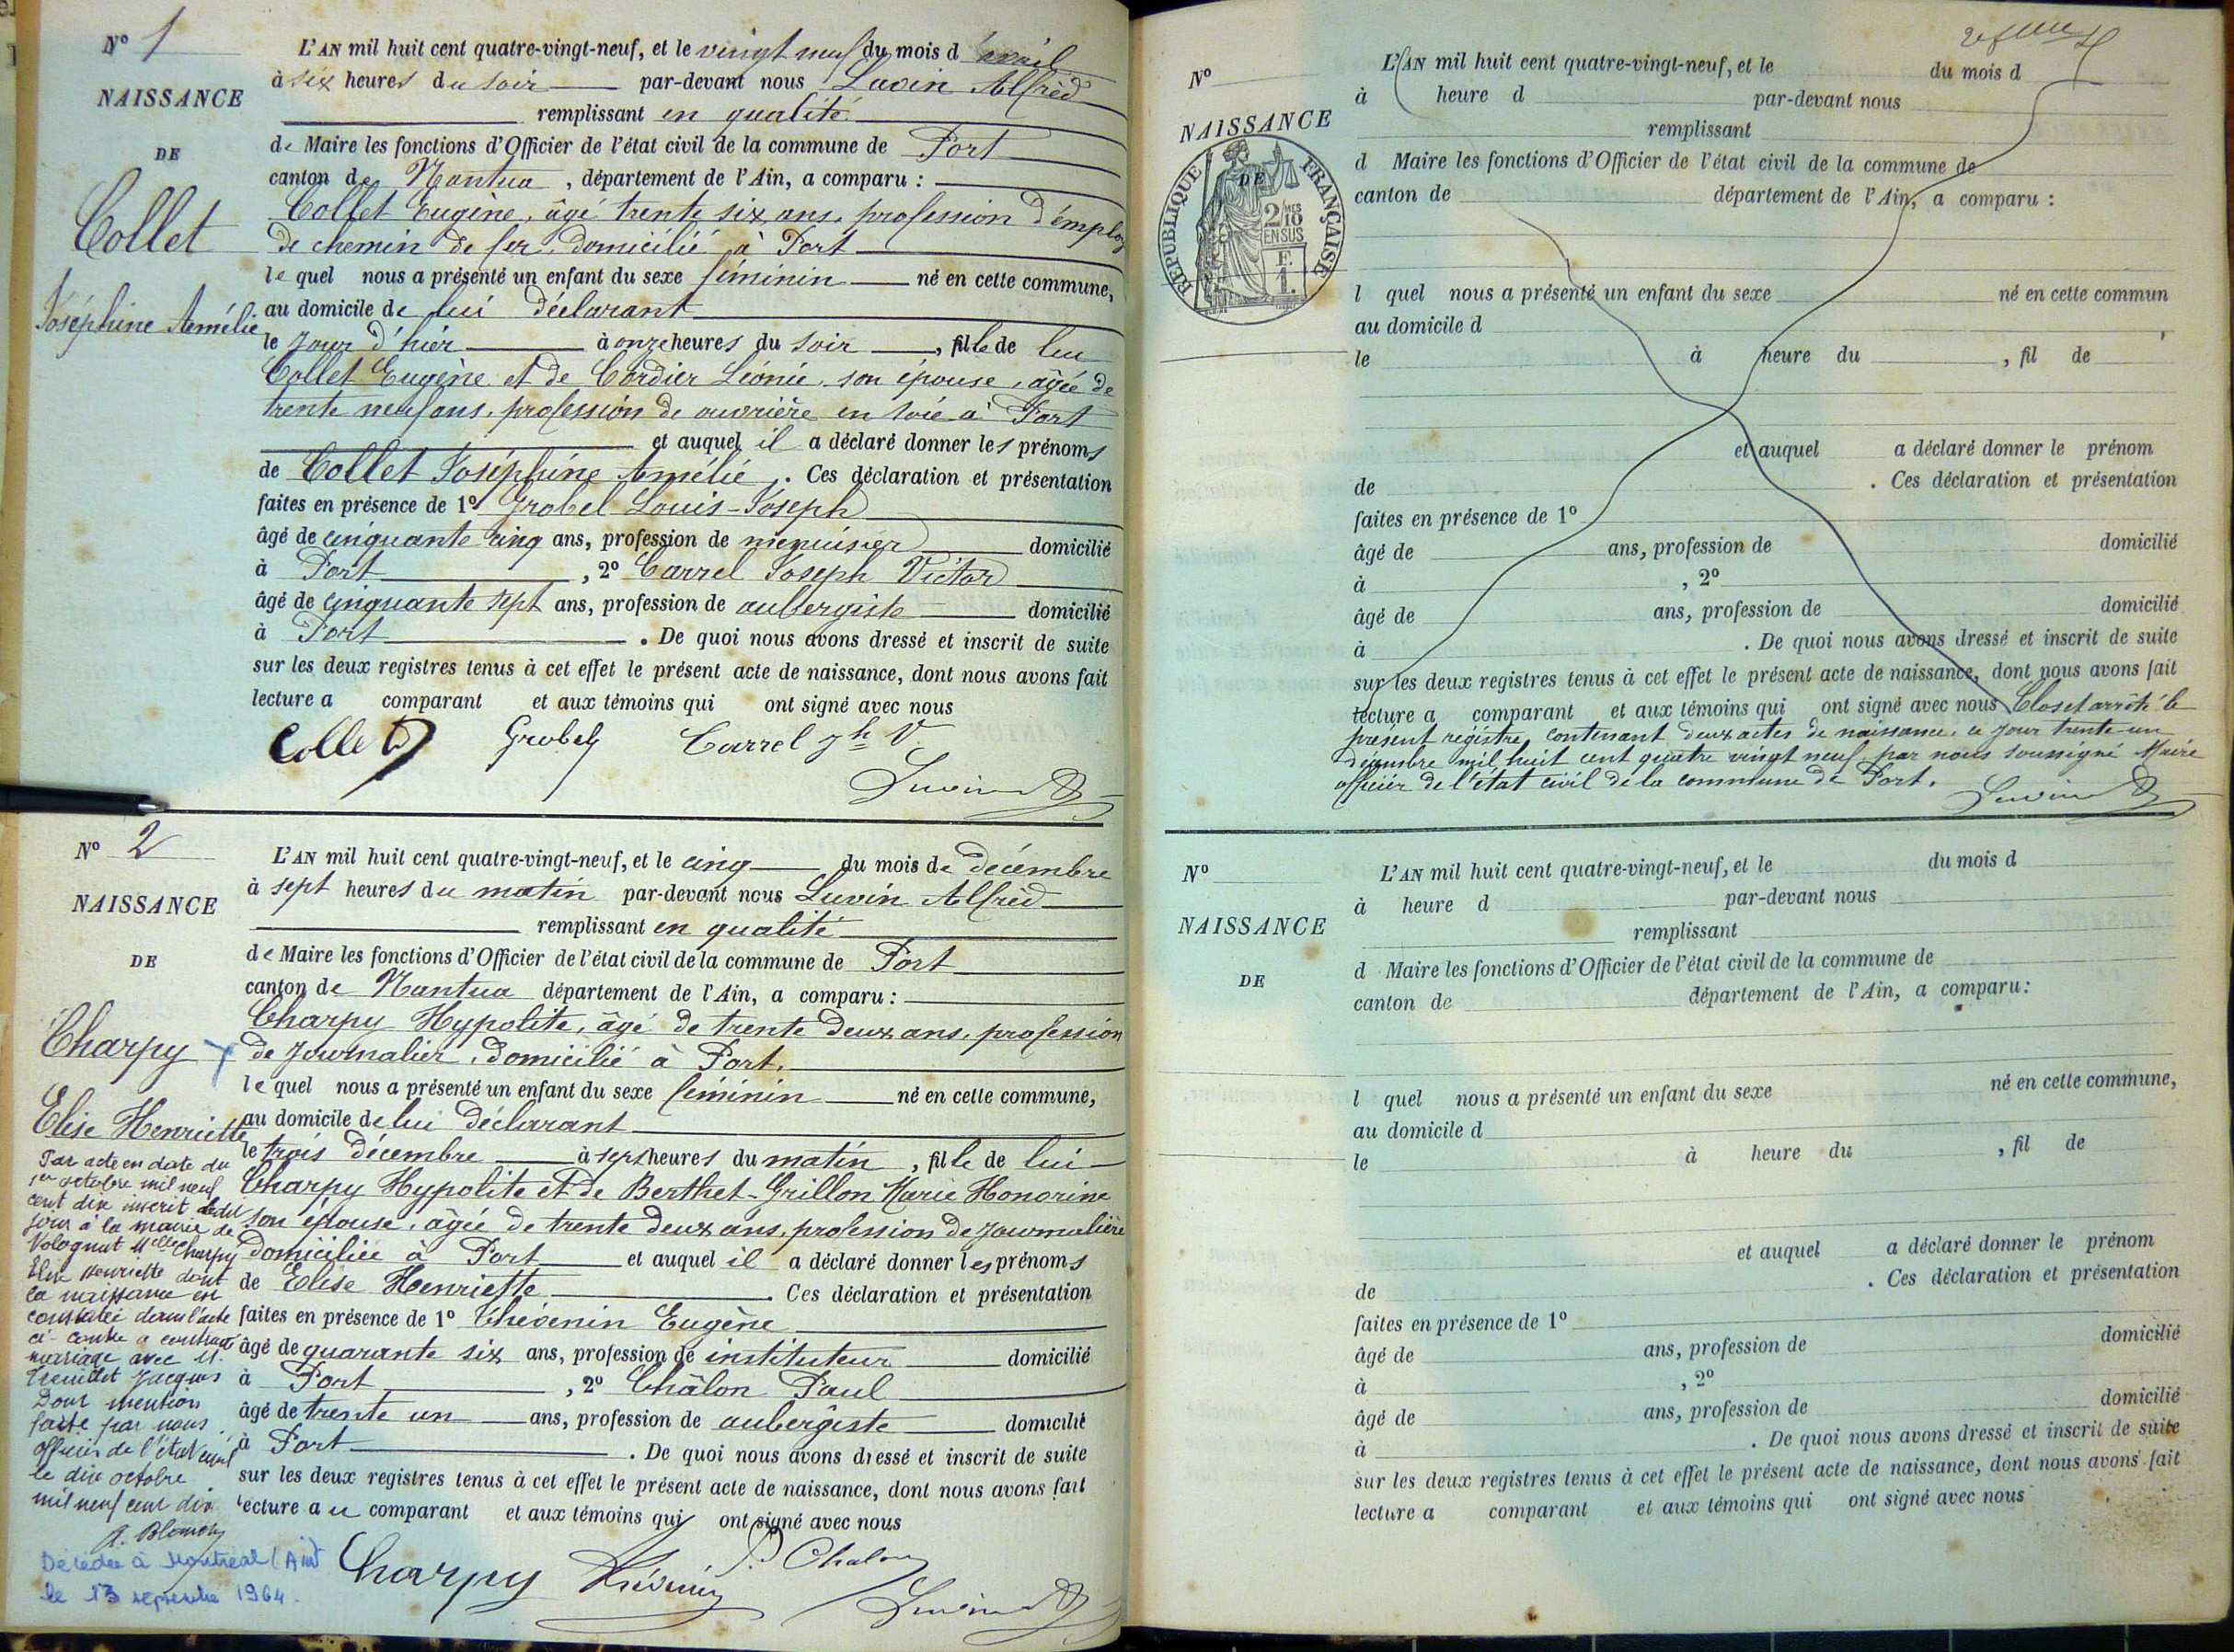 Nº 1
NAISSANCE
DE
Collet
Joséphine Amélie
L'AN mil huit cent quatre-vingt-neuf, et le vingt neuf du mois d'avril
à six heures du soir par-devant nous Luvin Alfred
remplissant en qualité
de Maire les fonctions d'Officier de l'état civil de la commune de Port
canton de Nantua, département de l'Ain, a comparu :
Collet Eugène, âgé trente six ans, profession d'employ
de chemin de fer, domicilié à Port
lequel nous a présenté un enfant du sexe féminin né en cette commune,
au domicile de lui déclarant
le jour d'hier à onze heures du soir, fille de lui
Collet Eugène et de Cordier Léonie, son épouse, agée de
trente neuf ans, profession de ouvrière en soie à Port
et auquel il a déclaré donner les prénoms
de Collet Joséphine Amélie. Ces déclaration et présentation
faites en présence de 1º Grobel Louis-Joseph
âgé de cinquante cinq ans, profession de menuisier domicilié
à Port, 2º Carrel Joseph Victor
âgé de cinquante sept ans, profession de aubergiste domicilié
à Port. De quoi nous avons dressé et inscrit de suite
sur les deux registres tenus à cet effet le présent acte de naissance, dont nous avons fait
lecture a comparant et aux témoins qui ont signé avec nous
Collet Grobel Carrel jh V
Luvin
Nº 2
NAISSANCE
DE
Charpy
Elise Henriette
L'AN mil huit cent quatre-vingt-neuf, et le cinq du mois de décembre
à sept heures du matin par-devant nous Luvin Alfred
remplissant en qualité
de Maire les fonctions d'Officier de l'état civil de la commune de Port
canton de Nantua département de l'Ain, a comparu :
Charpy Hypolite, âgé de trente deux ans, profession
de journalier, domicilié à Port.
lequel nous a présenté un enfant du sexe féminin né en cette commune,
au domicile de lui déclarant
le trois décembre à sept heures du matin, fille de lui
Charpy Hypolite et de Berthet-Grillon Marie Honorine
son épouse, agée de trente deux ans, profession de journalière
domiciliée à Port et auquel il a déclaré donner les prénoms
de Elise Henriette. Ces déclaration et présentation
faites en présence de 1º Thévenin Eugène
âgé de quarante six ans, profession de instituteur domicilié
à Port, 2º Châlon Paul
âgé de trente un ans, profession de aubergiste domicilié
à Port. De quoi nous avons dressé et inscrit de suite
sur les deux registres tenus à cet effet le présent acte de naissance, dont nous avons fait
lecture au comparant et aux témoins qui ont signé avec nous
Charpy Thévenin P. Chalon
Luvin
Par acte en date du
1er octobre mil neuf
cent dix inscrit ledit
jour à la mairie de
Volognat Melle Charpy
Elise Henriette dont
la naissance est
constatée dans l'acte
ci-contre a contracté
mariage avec M.
Jacques
Dont mention
faite par nous
officier de l'état civil
le dix octobre
mil neuf cent dix
Décédée à Montréal (Ain)
le 13 septembre 1964.
Nº
NAISSANCE
DE
RÉPUBLIQUE FRANÇAISE
2/10
EN SUS
F.
1.
L'AN mil huit cent quatre-vingt-neuf, et le du mois d
à heure d par-devant nous
remplissant
d Maire les fonctions d'Officier de l'état civil de la commune de
canton de département de l'Ain, a comparu :
l quel nous a présenté un enfant du sexe né en cette commun
au domicile d ,
le à heure du , fil de
et auquel a déclaré donner le prénom
de . Ces déclaration et présentation
faites en présence de 1º
âgé de ans, profession de domicilié
à , 2º
âgé de ans, profession de domicilié
à . De quoi nous avons dressé et inscrit de suite
sur les deux registres tenus à cet effet le présent acte de naissance, dont nous avons fait
lecture a comparant et aux témoins qui ont signé avec nous Clos et arrêté le
présent régistre, contenant deux actes de naissance, ce jour trente-un
décembre mil huit cent quatre vingt neuf par nous soussigné Maire
officier de l'état civil de la commune de Port.
Luvin
Nº
NAISSANCE
DE
L'AN mil huit cent quatre-vingt-neuf, et le du mois d
à heure d par-devant nous
remplissant
d Maire les fonctions d'Officier de l'état civil de la commune de
canton de département de l'Ain, a comparu :
l quel nous a présenté un enfant du sexe né en cette commune,
au domicile d
le à heure du , fil de
et auquel a déclaré donner le prénom
de . Ces déclaration et présentation
faites en présence de 1º
âgé de ans, profession de domicilié
à , 2º
âgé de ans, profession de domicilié
à . De quoi nous avons dressé et inscrit de suite
sur les deux registres tenus à cet effet le présent acte de naissance, dont nous avons fait
lecture a comparant et aux témoins qui ont signé avec nous